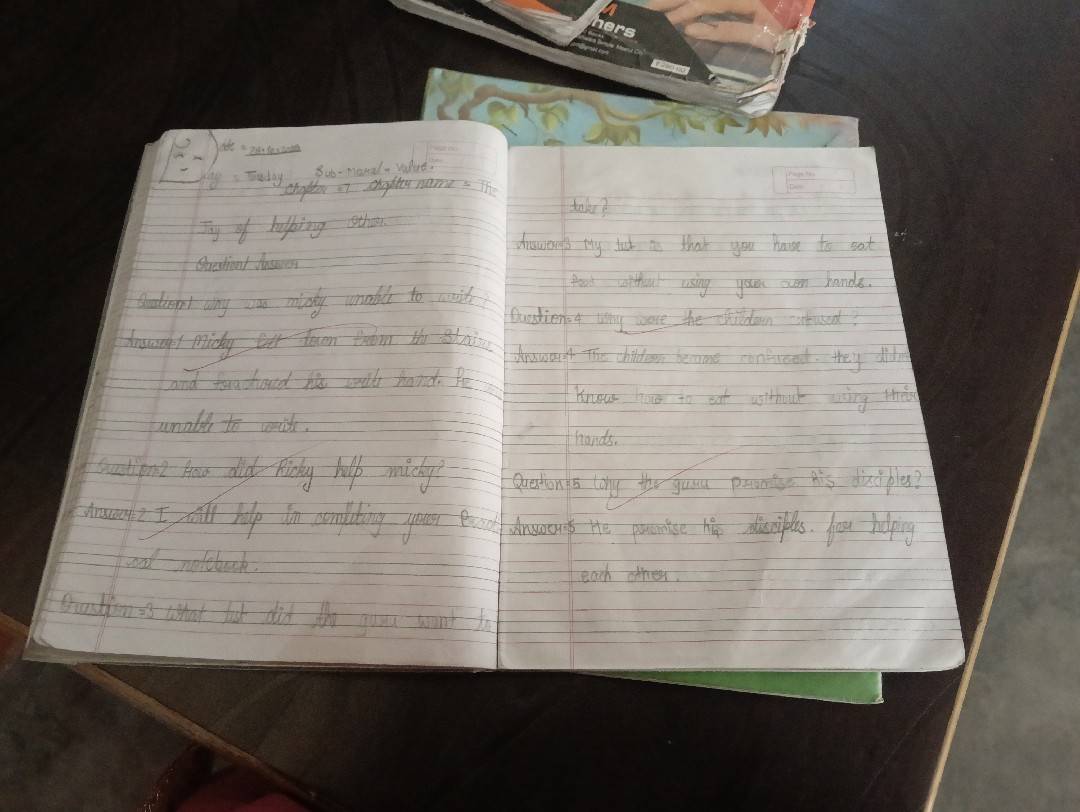 hers
₹ 280.00
Page No.
Date
Sub - Moral - Value.
= Tuesday
Chapter = 7 Chapter name = The
Joy of helping other.
Question/Answer
Question=1 Why was micky unable to write
Answer=1 Micky down from the Stairs
and his write hand. He
unable to write.
Question=2 How did Ricky help micky?
Answer=2 I will help in your
notebook.
Question=3 What did the guru want to
Page No.
Date
take?
Answer=3 My is that you have to eat
food without using your own hands.
Question=4 Why were the confused?
Answer=4 The became confused. they
Know how to eat without using their
hands.
Question=5 Why the guru promise his disciples?
Answer=5 He promise his disciples. for helping
each other.